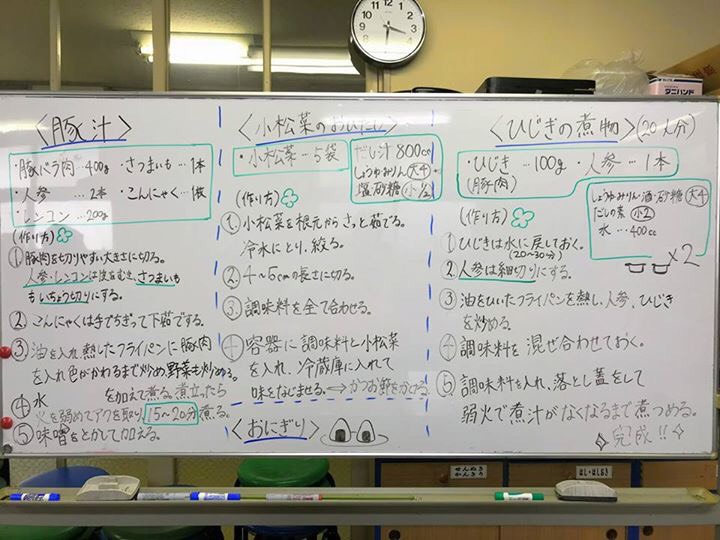 <豚汁>
・豚バラ肉…400g ・さつまいも…1本
・人参 …2本 ・こんにゃく…1枚
・レンコン…200g
(作り方)
①豚肉を切りやすい大きさに切る。
人参・レンコンは皮をむき、さつまいも
もいちょう切りにする。
②こんにゃくは手でちぎって下茹でする。
③油を入れ熱したフライパンに豚肉
を入れ色がかわるまで炒め、野菜も炒める。
④水 を加えて煮る。煮立ったら
火を弱めてアクを取り15〜20分煮る。
⑤味噌をとかして加える。
<小松菜のおひたし>
・小松菜…5袋
だし汁 800cc
しょうゆみりん 大4
塩 砂糖 小1/2
(作り方)
①小松菜を根元からさっと茹でる。
冷水にとり、絞る。
②4〜5cmの長さに切る。
③調味料を全て合わせる。
④容器に調味料と小松菜
を入れ、冷蔵庫に入れて
味をなじませる。⇔かつお節をかける。
<おにぎり>
<ひじきの煮物>(20人分)
・ひじき …100g ・人参…1本
(豚肉)
しょうゆ・みりん・酒・砂糖 大4
だしの素 小2
水 …400cc
×2
(作り方)
①ひじきは水に戻しておく。
(20〜30分)
②人参は細切りにする。
③油をひいたフライパンを熱し、人参、ひじき
を炒める。
④調味料を混ぜ合わせておく。
⑤調味料を入れ、落とし蓋をして
弱火で煮汁がなくなるまで煮つめる。
完成!!
タニハンド
せんぬき
かんきり
はし・はしおき